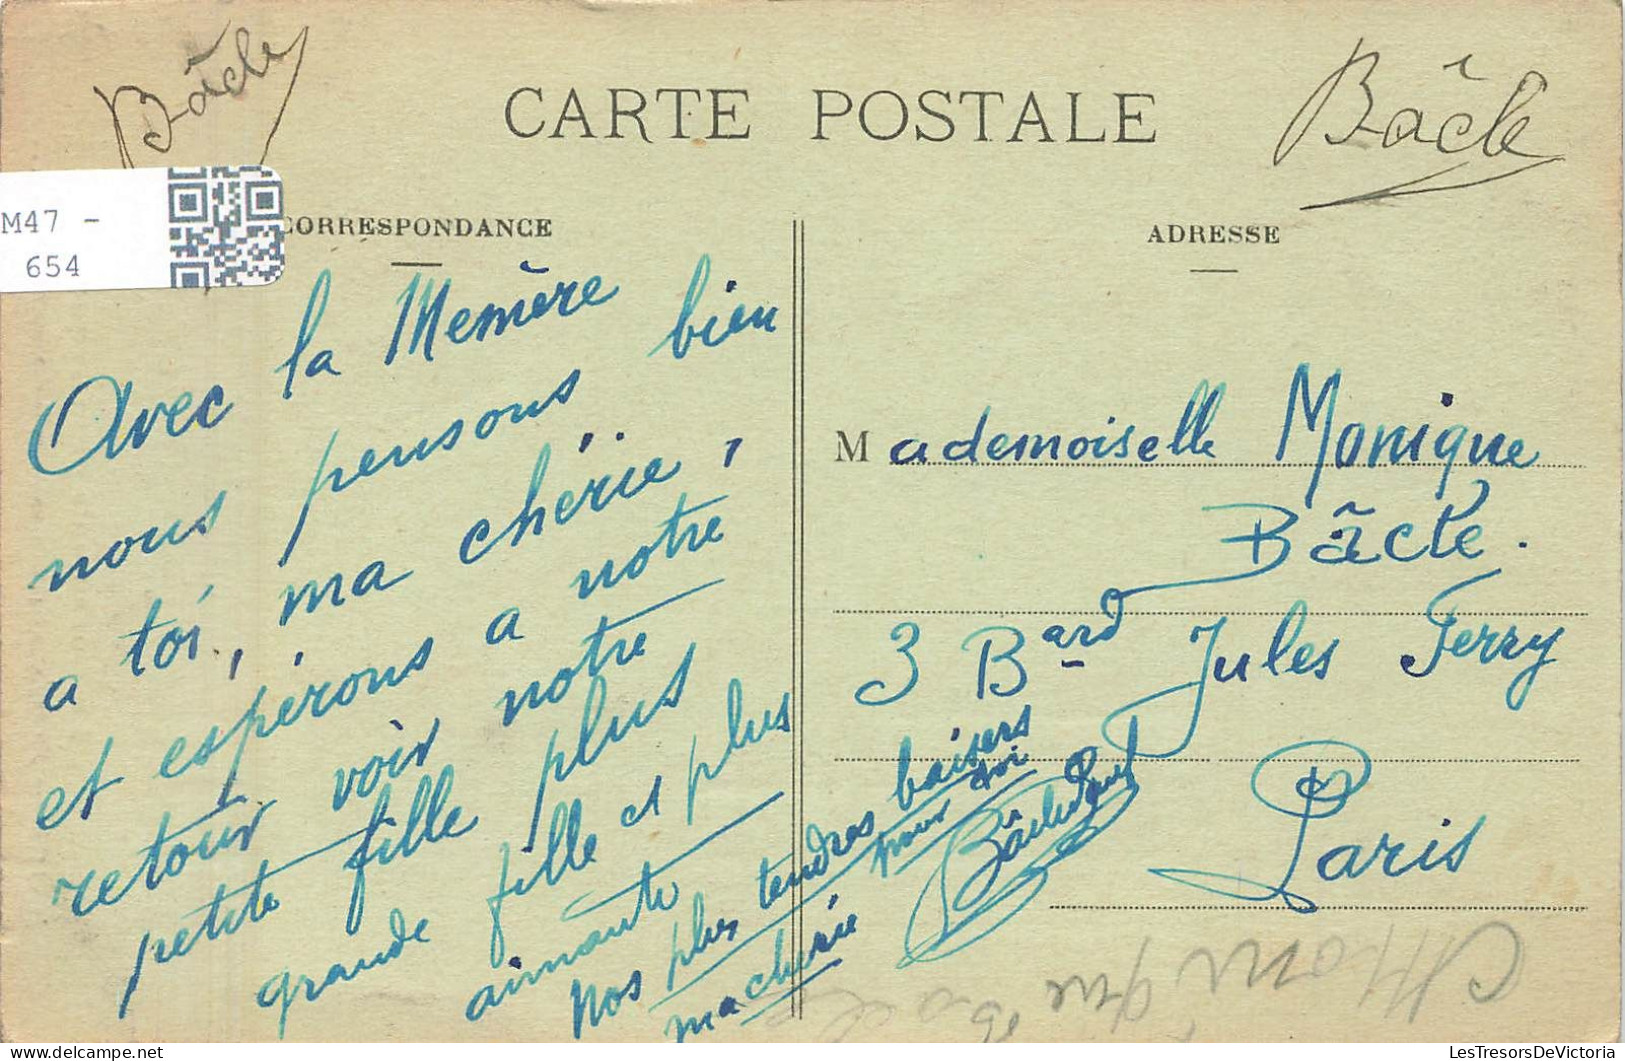 Bâcle
CARTE POSTALE
Bâcle
M47 -
654
CORRESPONDANCE
Avec la Memère
nous pensons bien
a toi, ma chérie,
et espérons a notre
retour voir notre
petite fille plus
grande fille et plus
aimante
Nos plus tendres baisers
pour toi
ma cherie
ADRESSE
Mademoiselle Monique
Bâcle.
3 Bard Jules Ferry
Paris
Monique
LesTresorsDeVictoria